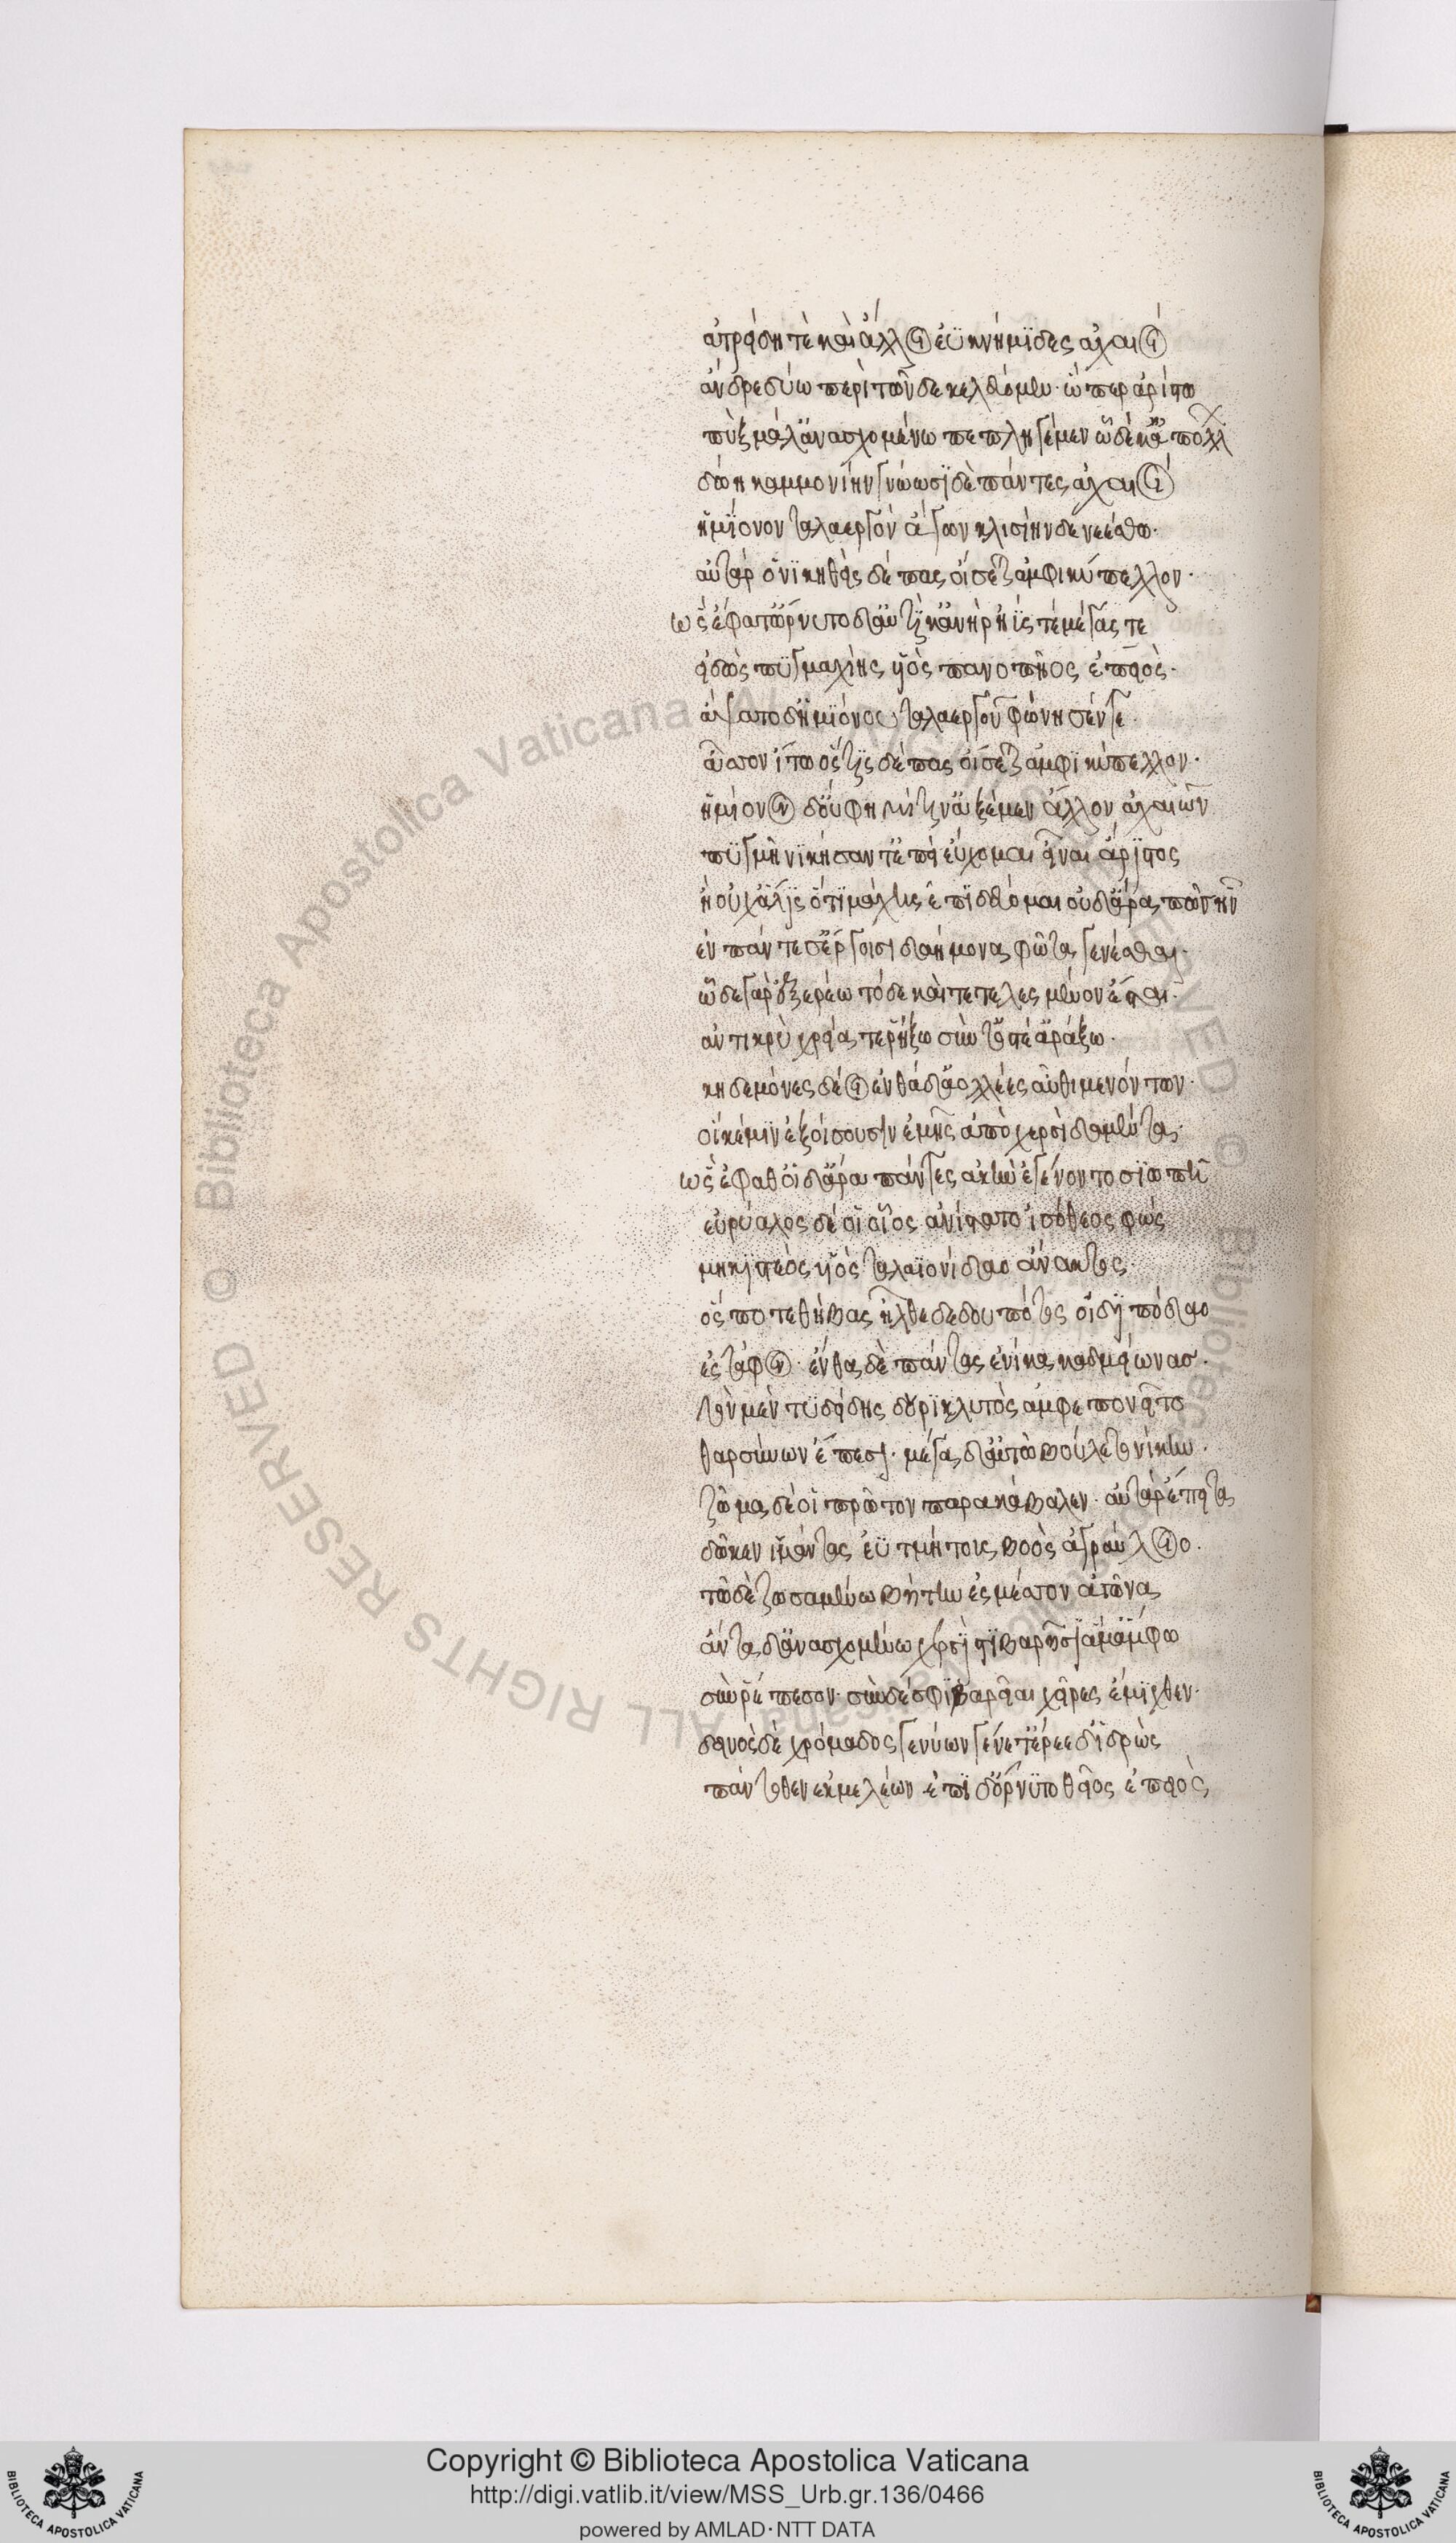 ἀτρείδη τὲ καὶ ἄλλοι ἐϋκνήμιδες ἀχαιοί
ἄνδρε δύω περὶ τῶνδε κελεύομεν· ὥ περ ἀρίστω
πὺξ μάλ' ἀνασχομένω πεπληγέμεν ᾧ δέ κ' ἀπόλλ
δώη καμμονίην γνώωσι δὲ πάντες ἀχαιοί
ἡμίονον ταλαεργὸν ἄγων κλισίην δε νεέσθω·
αὐτὰρ ὁ νικηθεὶς δέπας οἴσεται ἀμφικύπελλον·
ὣς ἔφατ' ὤρνυτο δ' αὐτίκ' ἀνὴρ ἠΰς τε μέγας τε
εἰδὼς πυγμαχίης υἱὸς πανοπῆος ἐπειός·
ἅψατο δ' ἡμιόνου ταλαεργοῦ φώνησέν τε·
ἆσσον ἴτω ὅς τις δέπας οἴσεται ἀμφικύπελλον·
ἡμίονον δ' οὔ φημί τιν' ἀξέμεν ἄλλον ἀχαιῶν
πυγμῇ νικήσαντ' ἐπεὶ εὔχομαι εἶναι ἄριστος
ἢ οὐχ' ἅλις ὅττι μάχης ἐπιδεύομαι οὐδ' ἄρα πως ἦν
ἐν πάντεσσ' ἔργοισι δαήμονα φῶτα γενέσθαι·
ὧδε γὰρ ἐξερέω τὸ δὲ καὶ τετελεσμένον ἔσται·
ἀντικρὺ χρόα τε ῥήξω σύν τ' ὀστέ' ἀράξω·
κηδεμόνες δέ οἱ ἐνθάδ' ἀολλέες αὖθι μενόντων·
οἵ κέ μιν ἐξοίσουσιν ἐμῇς ἀπὸ χερσὶ δαμέντα·
ὣς ἔφαθ' οἱ δ' ἄρα πάντες ἀκὴν ἐγένοντο σιωπῇ
εὐρύαλος δέ οἱ οἶος ἀνίστατο ἰσόθεος φώς
μηκιστέος υἱὸς ταλαϊονίδαο ἄνακτος·
ὅς ποτε θήβας ἦλθε δεδουπότος οἰδιπόδαο
ἐς τάφον· ἔνθα δὲ πάντας ἐνίκα καδμείωνας·
τὸν μὲν τυδείδης δουρικλυτὸς ἀμφεπονεῖτο
θαρσύνων ἔπεσι· μέγα δ' αὐτῷ βούλετο νίκην·
ζῶμα δέ οἱ πρῶτον παρακάβαλεν· αὐτὰρ ἔπειτα
δῶκεν ἱμάντας ἐϋτμήτους βοὸς ἀγραύλοιο·
τὼ δὲ ζωσαμένω βήτην ἐς μέσσον ἀγῶνα
ἄντα δ' ἀνασχομένω χερσὶ στιβαρῇσιν ἅμ' ἄμφω
σύν ῥ' ἔπεσον· σὺν δέ σφι βαρεῖαι χεῖρες ἔμιχθεν·
δεινὸς δὲ χρόμαδος γενύων γένετ' ἔρεε δ' ἱδρὼς
πάντοθεν ἐκ μελέων· ἐπὶ δ' ὄρνυτο θεῖος ἐπειὸς
Copyright © Biblioteca Apostolica Vaticana
http://digi.vatlib.it/view/MSS_Urb.gr.136/0466
powered by AMLAD·NTT DATA